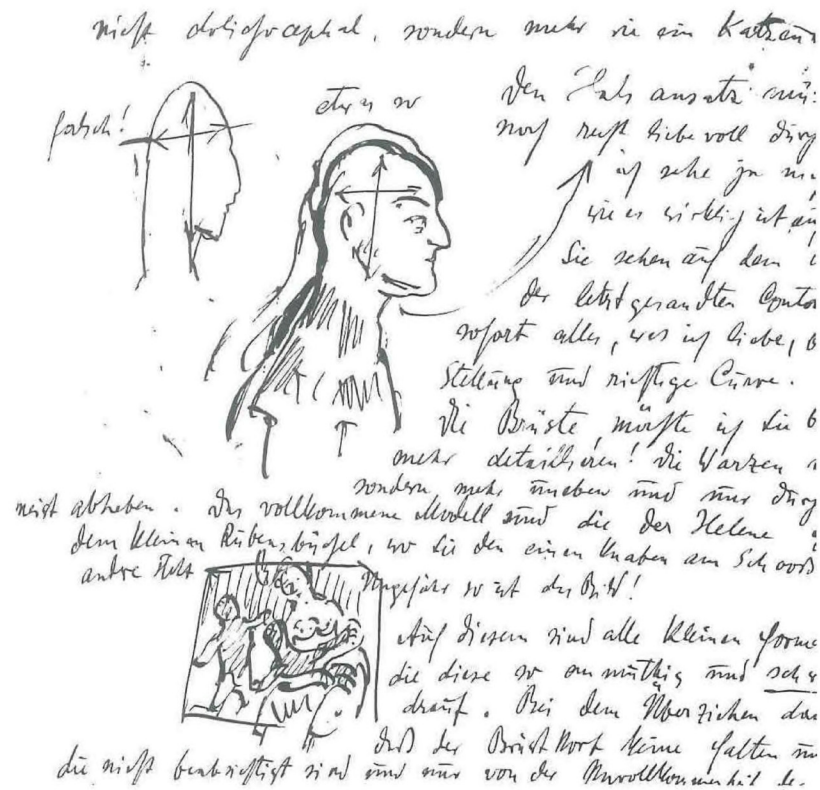 nicht dolichocephal, sondern mehr wie ein Katzen
falsch!
etwas so
Den Halsansatz
noch recht liebevoll
ich sehe ja
wie es wirklich ist
Sie sehen auf dem
der letztgesandten Conto
sofort alles, was ich liebe,
Stellung und richtige Curve.
Die Brüste möchte ich Sie b
mehr detaillieren! Die Warzen
sondern mehr uneben und nur
abheben. Das vollkommene Modell sind die der Helene
dem kleinen Rubensbüchel, wo sie den einen Knaben am Schooß
andre steht
Ungefähr so ist das Bild!
Auf diesem sind alle kleinen Forme
die diese so anmuthig und
drauf. Bei dem Überziehen
daß der keine Falten
die nicht beabsichtigt sind und nur von der Unvollkommenheit de